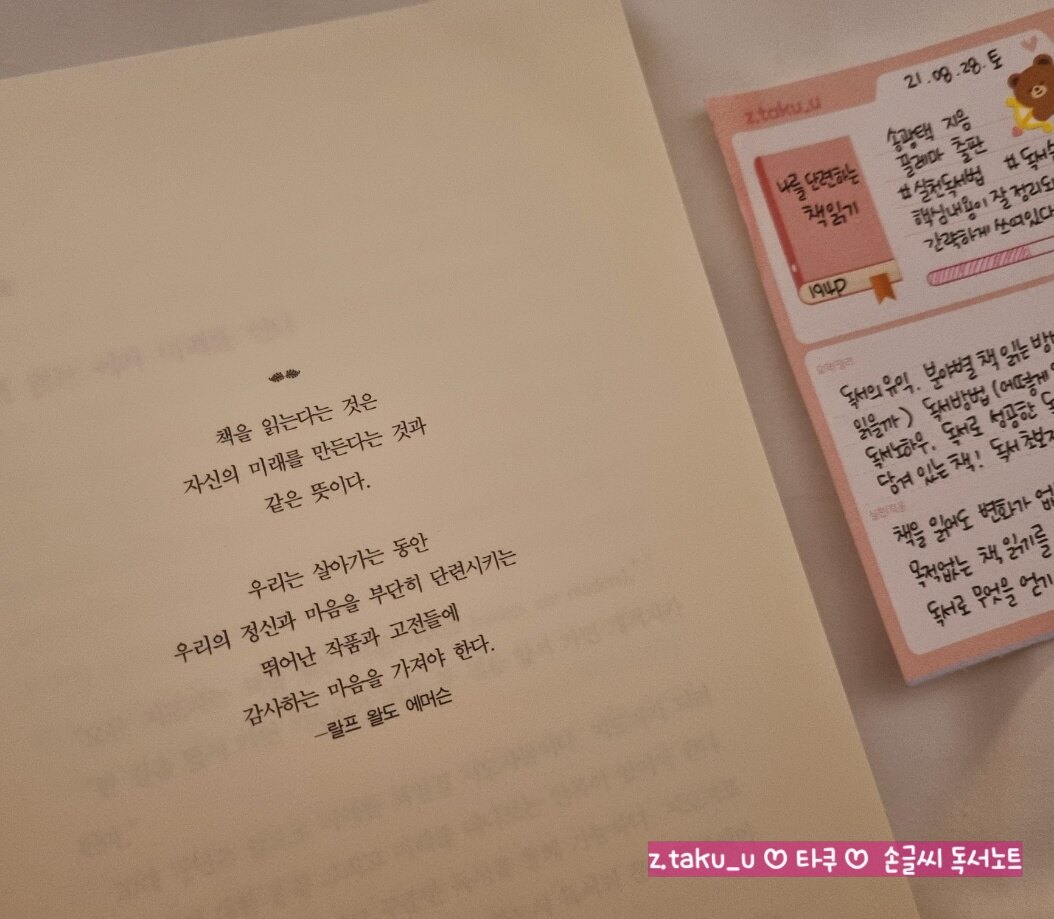 책을 읽는다는 것은
자신의 미래를 만든다는 것과
같은 뜻이다.
우리는 살아가는 동안
우리의 정신과 마음을 부단히 단련시키는
뛰어난 작품과 고전들에
감사하는 마음을 가져야 한다.
—랄프 왈도 에머슨
z.taku_u
21.08.28.토
나를 단련하는
책 읽기
194p
송광택 지음
플레마 출판
#실천독서법 #독서
핵심내용이 잘 정리되
간략하게 쓰여있다
독서의 유익. 분야별 책 읽는 방법
읽을까) 독서방법 (어떻게
독서노하우, 독서로 성공한
담겨 있는 책! 독서 초보자
책을 읽어도 변화가
목적없는 책 읽기를
독서로 무엇을 얻기
z.taku_u ♡ 타쿠 ♡ 손글씨 독서노트